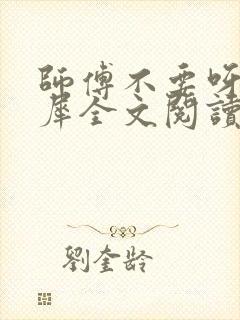 師傅不要呀
犀全文閱讀
劉奎齡